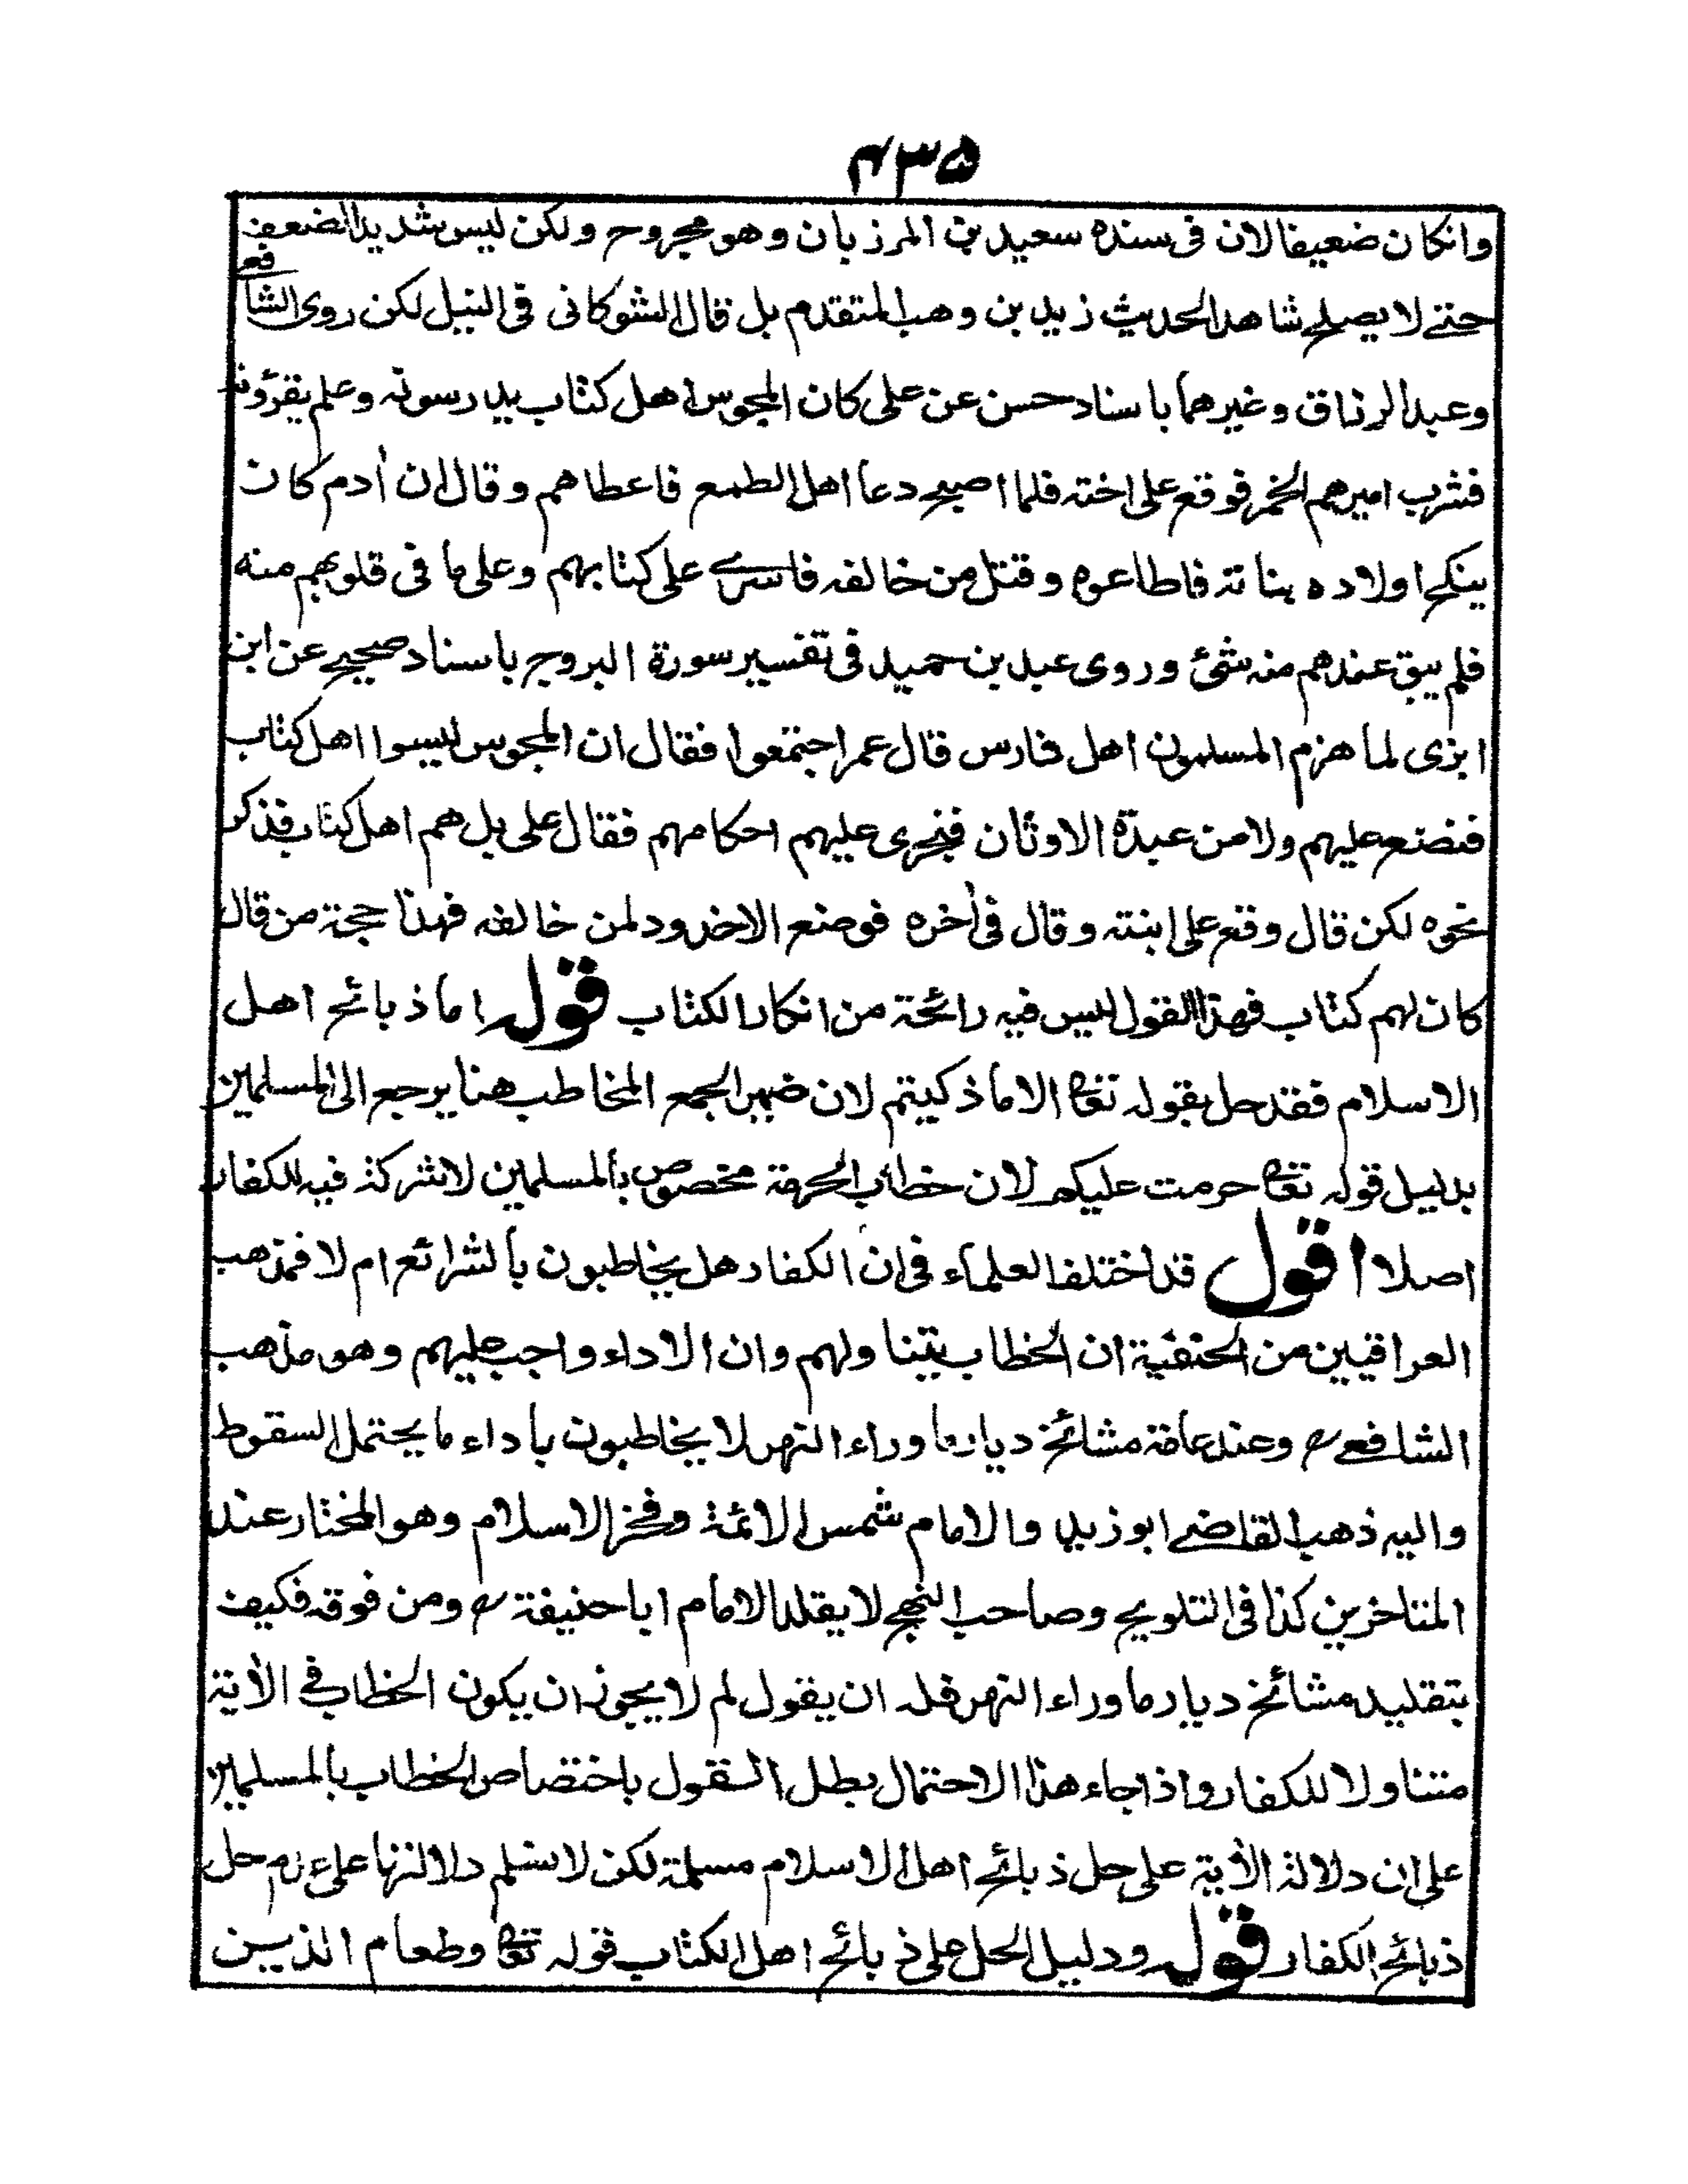 ۴۳۵
وانكان ضعيفا لان فى سنده سعيد بن المرزبان وهو مجروح ولكن ليس بشديد الضعف
حتے لا يصلح شاهدا لحديث زيد بن وهب المتقدم بل قال الشوكانى فى النيل لكن روى الشافعے
وعبد الرزاق وغيرهما باسناد حسن عن على كان المجوس اهل كتاب يدرسونه وعلم يقرؤنه
فشرب اميرهم الخمر فوقع على اخته فلما اصبح دعا اهل الطمع فاعطاهم وقال ان أدم كان
ينكح اولاده بناته فاطاعوه وقتل من خالفه فاسرے على كتابهم وعلى ما فى قلوبهم منه
فلم يبق عندهم منه شئ وروى عبد بن حميد فى تفسير سورة البروج باسناد صحيح عن ابن
ابزى لما هزم المسلمون اهل فارس قال عمر اجتمعوا فقال ان المجوس ليسوا اهل كتاب
فنضع عليهم ولا من عبدة الاوثان فنجرى عليهم احكامهم فقال على بل هم اهل كتاب فذكر
نحوه لكن قال وقع على ابنته وقال فى أخره فوضع الاخدود لمن خالفه فهذا حجة من قال
كان لهم كتاب فهذا القول ليس فيه رائحة من انكار الكتاب قوله اما ذبائح اهل
الاسلام فقد حل بقوله تعالى الا ما ذكيتم لان ضمير الجمع المخاطب هنا يرجع الى المسلمين
بدليل قوله تعالى حرمت عليكم لان خطاب الحرمة مخصوص بالمسلمين لا شركة فيه للكفار
اصلا اقول قد اختلف العلماء فى ان الكفار هل يخاطبون بالشرائع ام لا فمذهب
العراقيين من الحنفية ان الخطاب يتنا ولهم وان الاداء واجب عليهم وهو مذهب
الشافعے رح وعند عامة مشائخ ديار ما وراء النهر لا يخاطبون باداء ما يحتمل السقوط
واليه ذهب القاضے ابو زيد والامام شمس الائمة وفخر الاسلام وهو المختار عند
المتاخرين كذا فى التلويح وصاحب النهج لا يقلد الامام اباحنيفة رح ومن فوقه فكيف
بتقليد مشائخ ديار ما وراء النهر فله ان يقول لم لا يجوز ان يكون الخطاب فے الأية
متناولا للكفار واذا جاء هذا الاحتمال بطل القول باختصاص الخطاب بالمسلمين
على ان دلالة الأية على حل ذبائح اهل الاسلام مسلمة لكن لا نسلم دلالتها على عدم حل
ذبائح الكفار قوله ودليل الحل على ذبائح اهل الكتاب قوله تعالى وطعام الذين